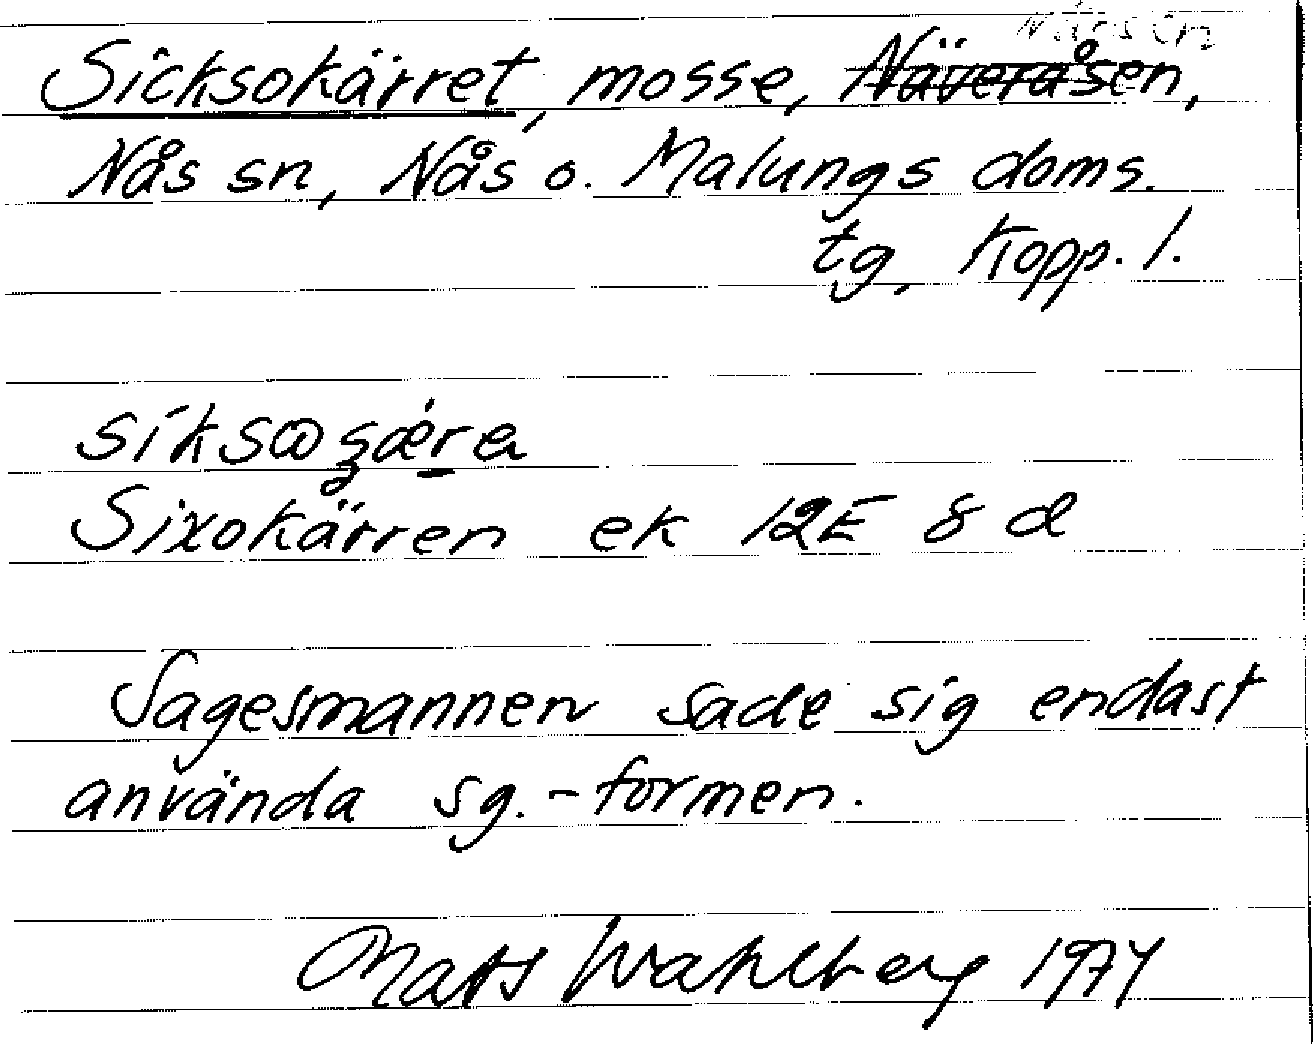 Sicksokärret, mosse, Näveråsen,
Nås sn, Nås o. Malungs doms.
tg, Kopp. l.
Sixokärren ek 12E 8 d
Sagesmannen sade sig endast
använda sg.-formen.
Mats Wahlberg 1974